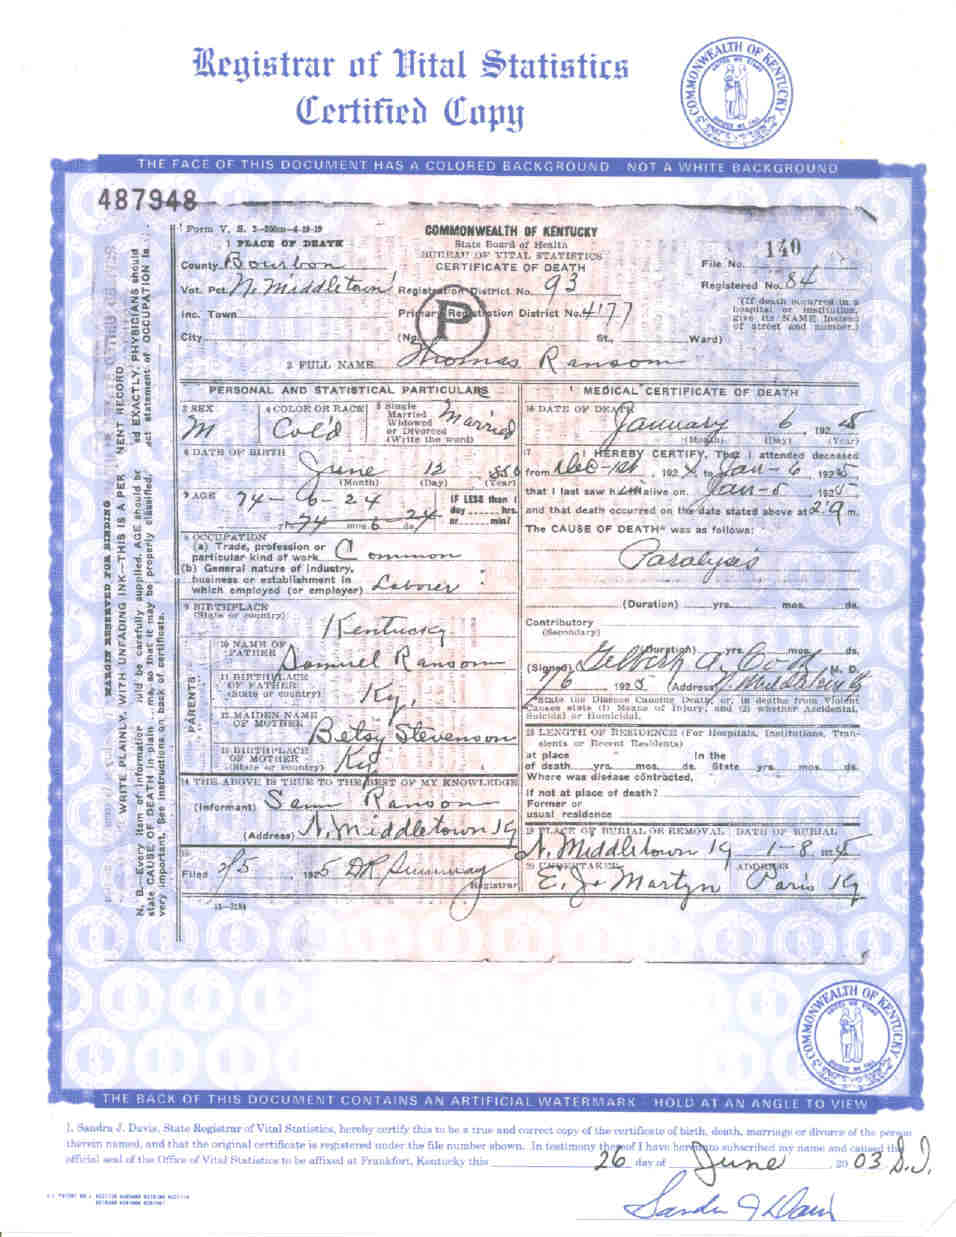 Registrar of Vital Statistics
Certified Copy
COMMONWEALTH OF KENTUCKY
THE FACE OF THIS DOCUMENT HAS A COLORED BACKGROUND NOT A WHITE BACKGROUND
487948
Form V. S. 1 PLACE OF DEATH
County Bourbon
Vot. Pct. N. Middletown
Inc. Town
City
COMMONWEALTH OF KENTUCKY
State Board of Health
BUREAU OF VITAL STATISTICS
CERTIFICATE OF DEATH
Registration District No. 93
Primary Registration District No. 4177
(No. St., Ward)
P
File No. 140
Registered No. 84
(If death occurred in a
hospital or institution,
give its NAME instead
of street and number.)
2 FULL NAME Thomas Ransom
MARGIN RESERVED FOR BINDING
WRITE PLAINLY, WITH UNFADING INK—THIS IS A PER NENT RECORD
N. B.—Every item of information should be carefully supplied. AGE should be ed EXACTLY. PHYSICIANS should
state CAUSE OF DEATH in plain ms, so that it may be properly classified. act statement of OCCUPATION is
very important. See instructions on back of certificate.
PERSONAL AND STATISTICAL PARTICULARS
3 SEX
M
4 COLOR OR RACE
Col'd
5 Single
Married
Widowed
or Divorced
(Write the word)
Married
6 DATE OF BIRTH
June 12 1850
(Month) (Day) (Year)
7 AGE 74-6-24
74 yrs. 6 mos. 24 ds.
IF LESS than 1
day hrs.
or min?
8 OCCUPATION
(a) Trade, profession or
particular kind of work Common
(b) General nature of industry,
business or establishment in
which employed (or employer) Laborer
9 BIRTHPLACE
(State or country) Kentucky
PARENTS
10 NAME OF
FATHER Samuel Ransom
11 BIRTHPLACE
OF FATHER
(State or country) Ky.
12 MAIDEN NAME
OF MOTHER Betsy Stevenson
13 BIRTHPLACE
OF MOTHER
(State or country) Ky
14 THE ABOVE IS TRUE TO THE BEST OF MY KNOWLEDGE
(Informant) Sam Ransom
(Address) N. Middletown Ky
15
Filed 2/5, 1925
Registrar
11-3184
MEDICAL CERTIFICATE OF DEATH
16 DATE OF DEATH
January 6 1925
(Month) (Day) (Year)
17 I HEREBY CERTIFY, That I attended deceased
from Dec-1st, 1924 to Jan-6, 1925
that I last saw him alive on Jan-5 1925
and that death occurred on the date stated above at 2 9 m.
The CAUSE OF DEATH* was as follows:
Paralysis
(Duration) yrs. mos. ds.
Contributory
(Secondary)
(Duration) yrs. mos. ds.
(Signed) M. D.
1/6 1925 (Address) N. Middletown Ky
*State the Disease Causing Death, or, in deaths from Violent
Causes state (1) Means of Injury; and (2) whether Accidental,
Suicidal or Homicidal.
18 LENGTH OF RESIDENCE (For Hospitals, Institutions, Tran-
sients or Recent Residents)
at place In the
of death yrs. mos. ds. State yrs. mos. ds.
Where was disease contracted,
if not at place of death?
Former or
usual residence
19 PLACE OF BURIAL OR REMOVAL DATE OF BURIAL
N. Middletown Ky 1-8 1925
20 UNDERTAKER ADDRESS
Paris Ky
COMMONWEALTH OF KENTUCKY
THE BACK OF THIS DOCUMENT CONTAINS AN ARTIFICIAL WATERMARK HOLD AT AN ANGLE TO VIEW
I, Sandra J. Davis, State Registrar of Vital Statistics, hereby certify this to be a true and correct copy of the certificate of birth, death, marriage or divorce of the person
therein named, and that the original certificate is registered under the file number shown. In testimony thereof I have hereunto subscribed my name and caused the
official seal of the Office of Vital Statistics to be affixed at Frankfort, Kentucky this 26 day of June, 2003 S.J.
Sandra J Davis